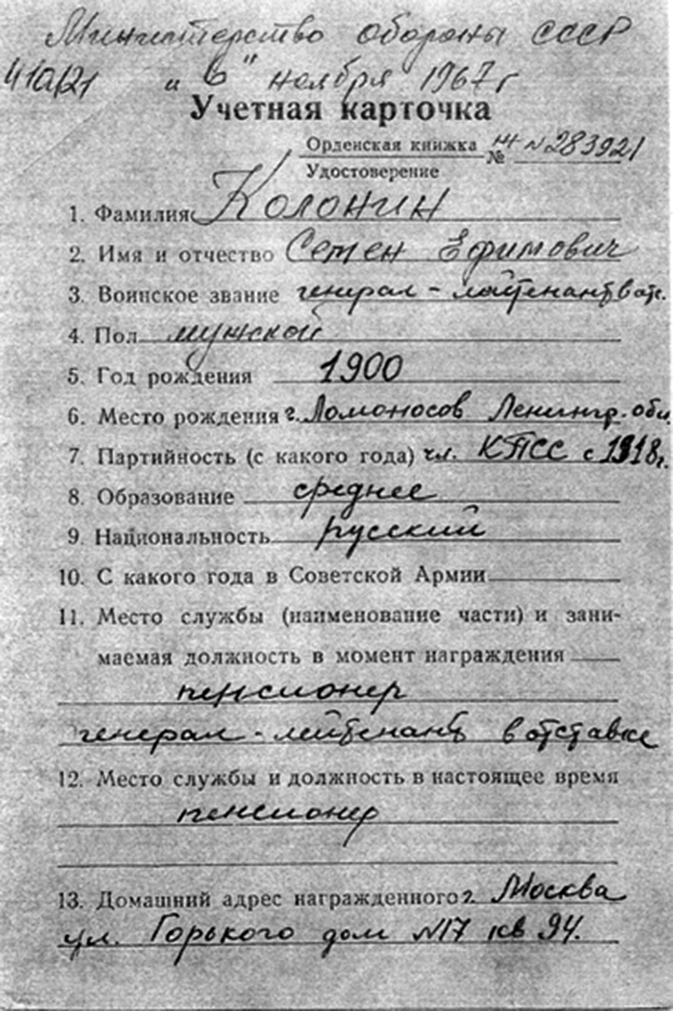 Министерство обороны СССР
410/21 "6" ноября 1967 г
Учетная карточка
Орденская книжка № М N 283921
Удостоверение
1. Фамилия Колонин
2. Имя и отчество Семен Ефимович
3. Воинское звание генерал-лейтенант в отс.
4. Пол мужской
5. Год рождения 1900
6. Место рождения г. Ломоносов Ленингр. обл.
7. Партийность (с какого года) чл. КПСС с 1918г.
8. Образование среднее
9. Национальность русский
10. С какого года в Советской Армии
11. Место службы (наименование части) и зани-
маемая должность в момент награждения
пенсионер
генерал-лейтенант в отставке
12. Место службы и должность в настоящее время
пенсионер
13. Домашний адрес награжденного г. Москва
ул. Горького дом N17 кв 94.